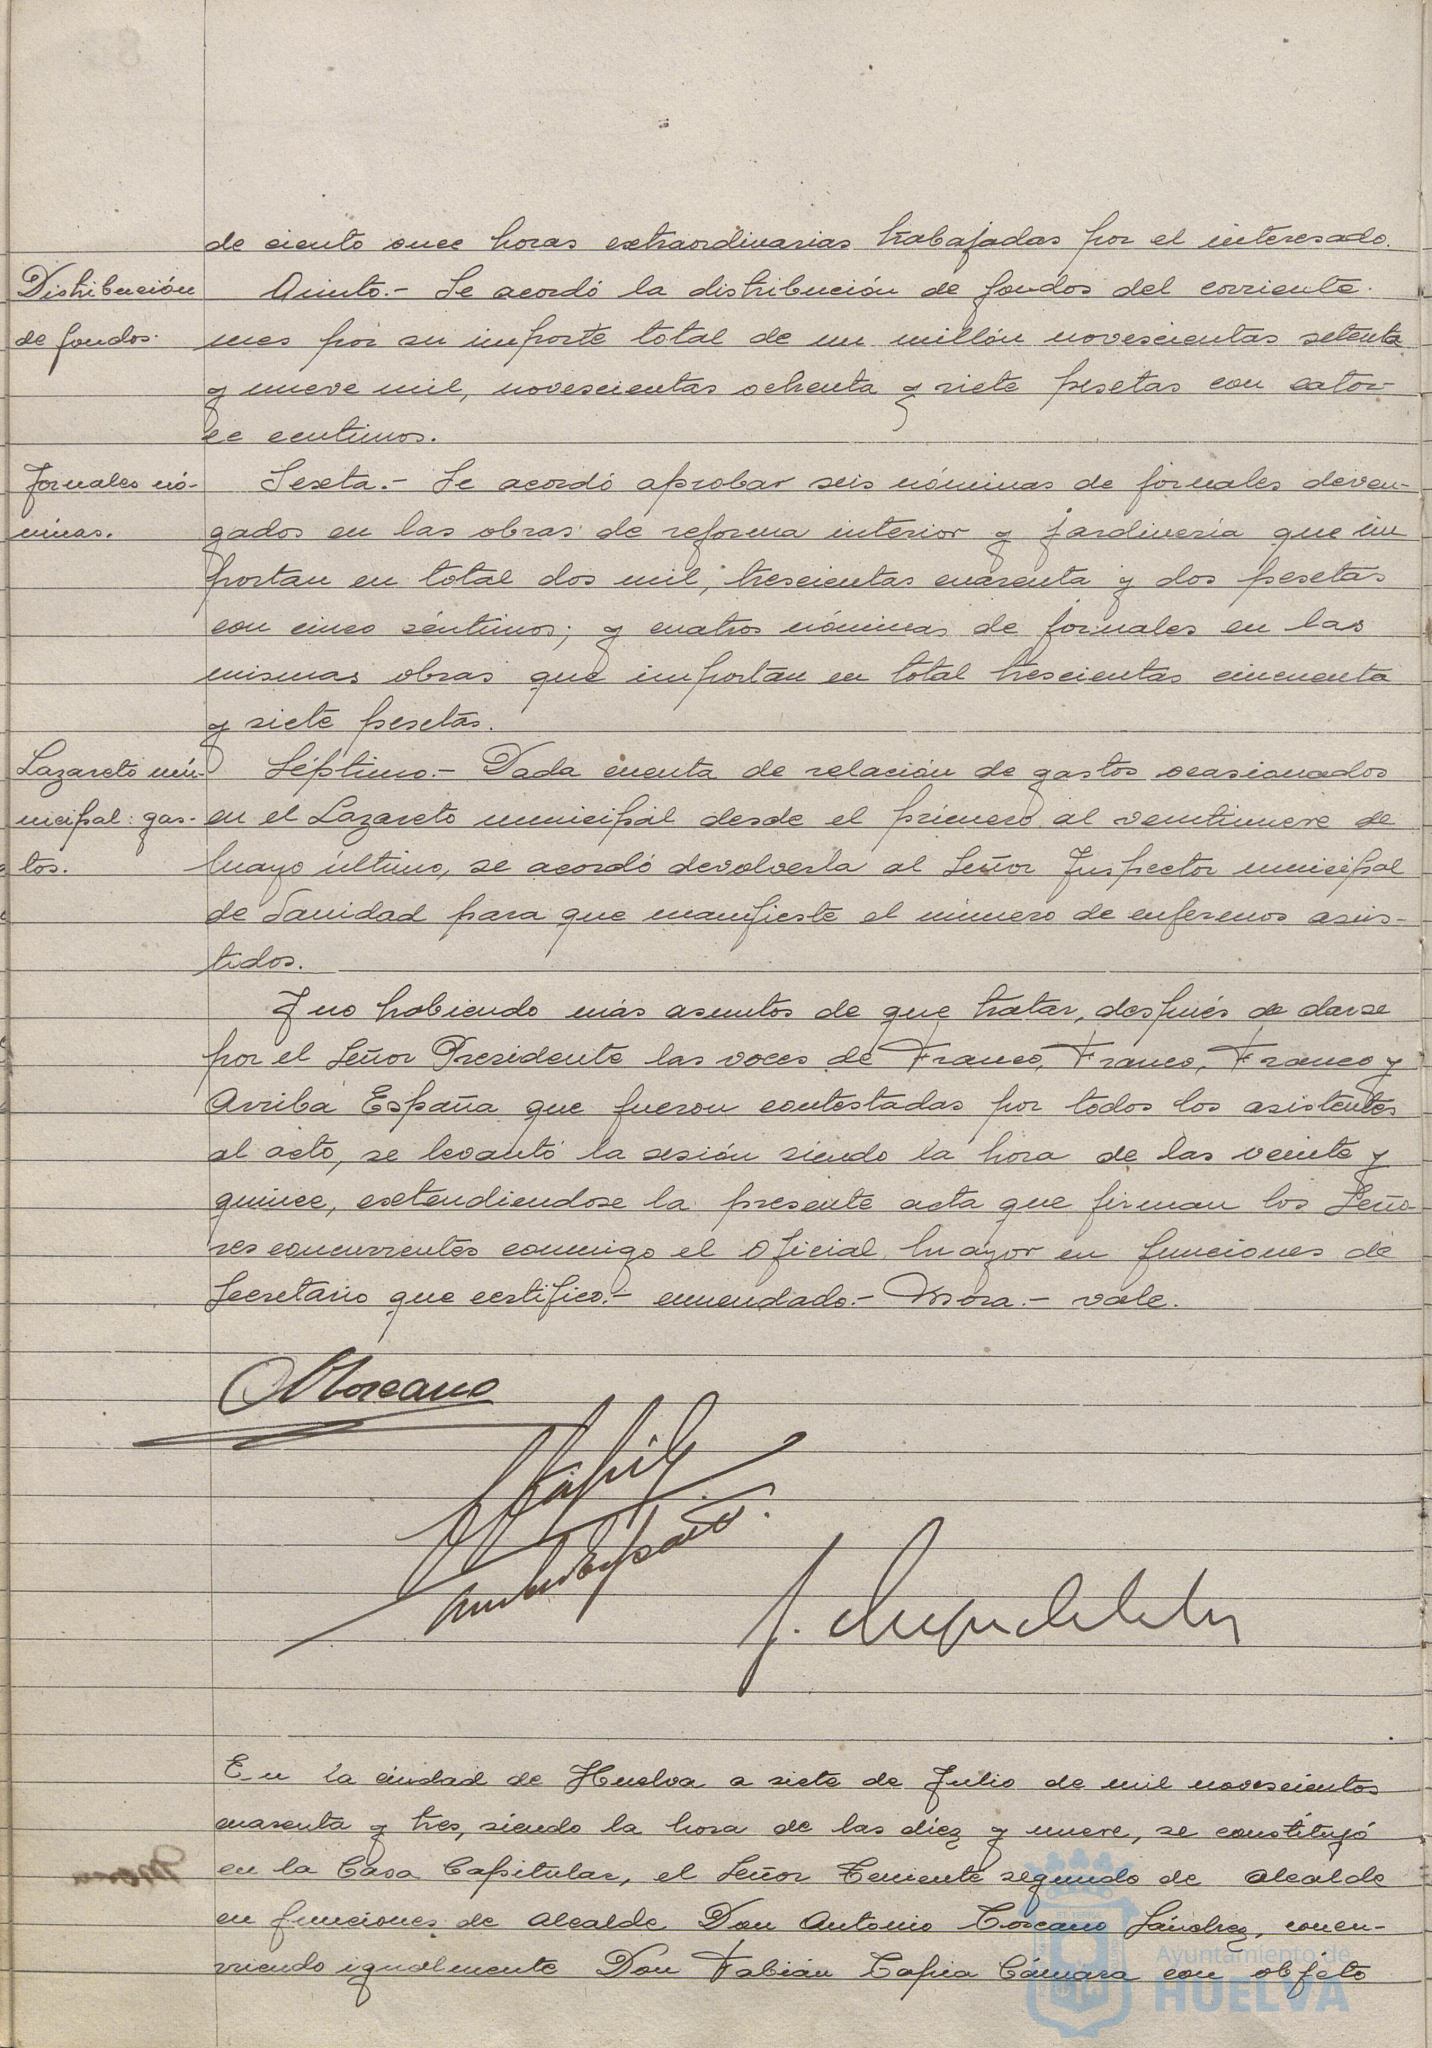 de ciento once horas extraordinarias trabajadas por el interesado.
Distribución
de fondos.
Quinto.- Se acordó la distribución de fondos del corriente
mes por su importe total de un millón novescientas setenta
y nueve mil, novescientas ochenta y siete pesetas con cator-
ce centimos.
Jornales nó-
minas.
Sexta.- Se acordó aprobar seis nóminas de jornales deven-
gados en las obras de reforma interior y jardineria que im
portan en total dos mil, trescientas cuarenta y dos pesetas
con cinco séntimos; y cuatros nóminas de jornales en las
mismas obras que importan en total trescientas cincuenta
y siete pesetas.
Lazareto mu-
nicipal: gas-
tos.
Séptimo.- Dada cuenta de relación de gastos ocasionados
en el Lazareto municipal desde el primero al veintinueve de
Mayo último, se acordó devolverla al Señor Inspector municipal
de Sanidad para que manifieste el número de enfermos asis-
tidos.
Y no habiendo más asuntos de que tratar, después de darse
por el Señor Presidente las voces de Franco, Franco, Franco y
Arriba España que fueron contestadas por todos los asistentes
al acto, se levantó la sesión siendo la hora de las veinte y
quince, extendiendose la presente acta que firman los Seño-
res concurrentes conmigo el Oficial Mayor en funciones de
Secretario que certifico.- enmendado.- Mora.- vale.
Toscano
Tapia
En la ciudad de Huelva a siete de Julio de mil novescientos
cuarenta y tres, siendo la hora de las diez y nueve, se constituyó
en la Casa Capitular, el Señor Teniente segundo de Alcalde
en funciones de Alcalde Don Antonio Toscano Sánchez, concu-
rriendo igualmente Don Fabián Tapia Cámara con objeto
Ayuntamiento de
HUELVA